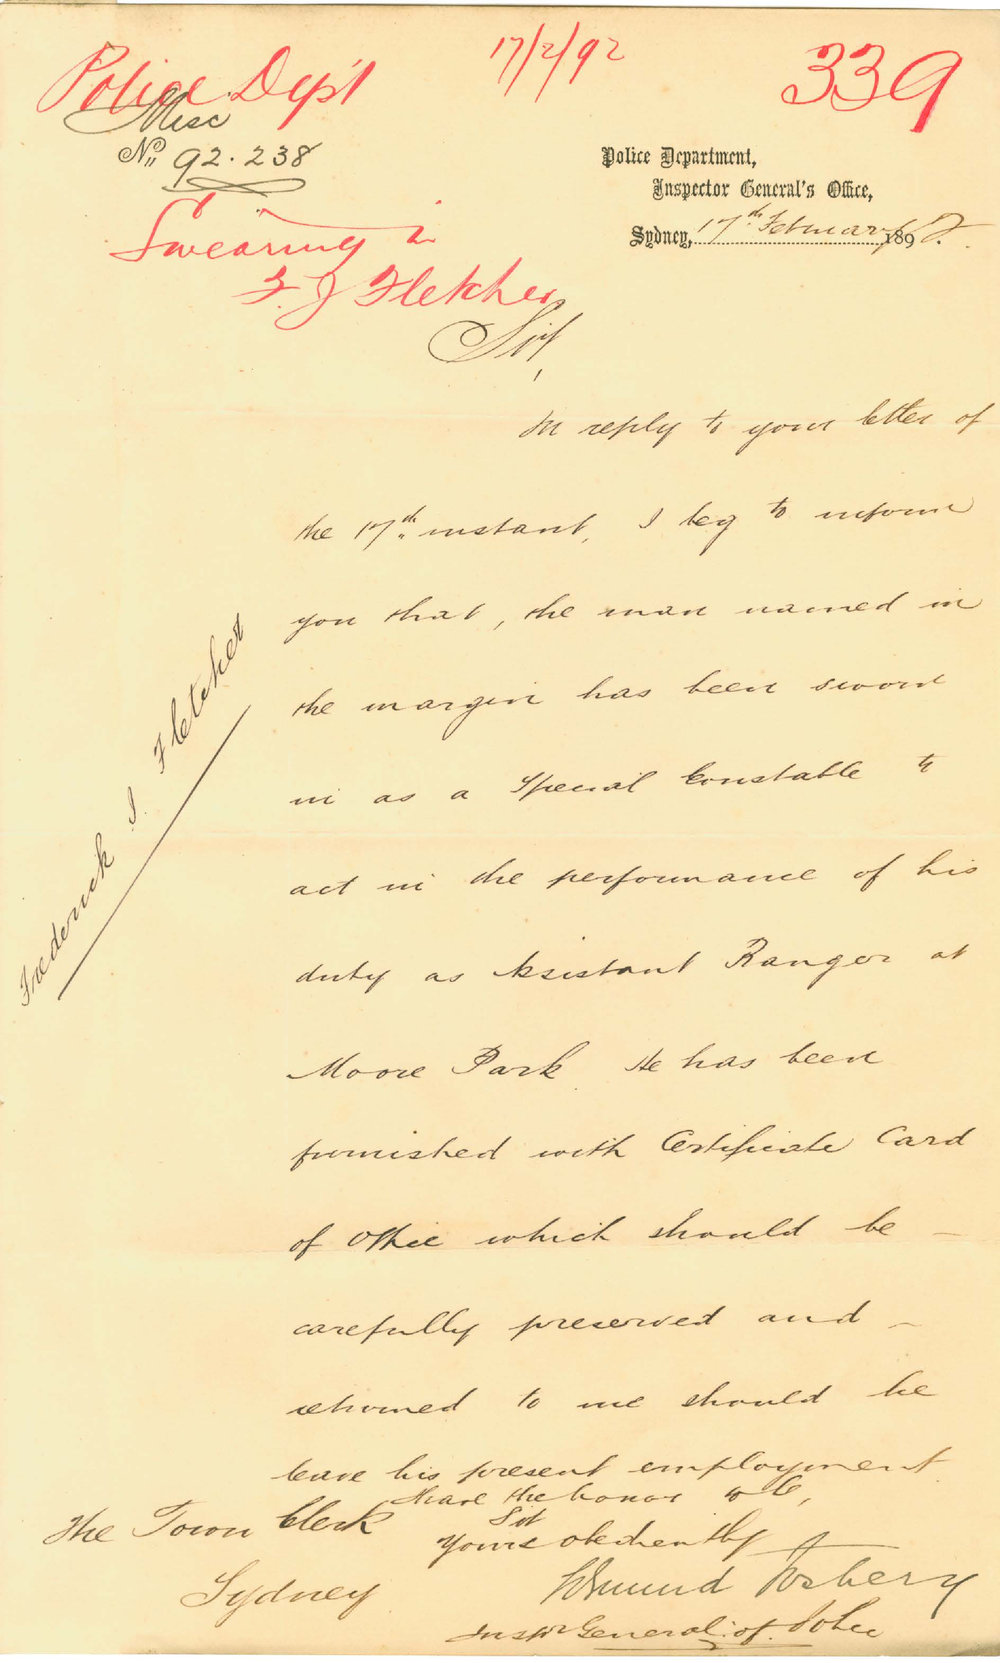 Police Dep't
17/2/92
339
Misc
No. 92.238
Swearing in
F. J Fletcher
Police Department,
Inspector General's Office,
Sydney, 17th February 1892.
Sir,
In reply to your letter of
the 17th instant, I beg to inform
you that, the man named in
the margin has been sworn
in as a Special Constable to
act in the performance of his
duty as Assistant Ranger at
Moore Park. He has been
furnished with Certificate Card
of Office which should be
carefully preserved and
returned to me should he
leave his present employment
Frederick J. Fletcher
I have the honor to be,
Sir
Yours obediently
Edmund Fosbery
Inspr General of Police
The Town Clerk
Sydney